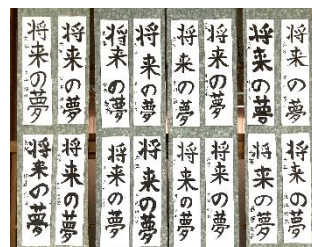 将来の夢
将来の夢
将来の夢
将来の夢
将来の夢
将来の夢
将来の夢
将来の夢
将来の夢
将来の夢
将来の夢
将来の夢
将来の夢
将来の夢
将来の夢
将来の夢